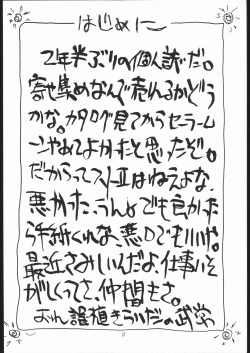 はじめに
2年半ぶりの個人誌だ。
寄せ集めなんで売れるかどう
かな。カタログ見てからセーラーム
ーンやめてよかったと思ったぞ。
だからってストIIはねえよな、
悪かった、うんとでも良かった
ら手紙くれな、悪口でもいいや。
最近さみしいんだよ、仕事いそ
がしくってさ、仲間もさ。
おれ 誤植きらいだの武蔵